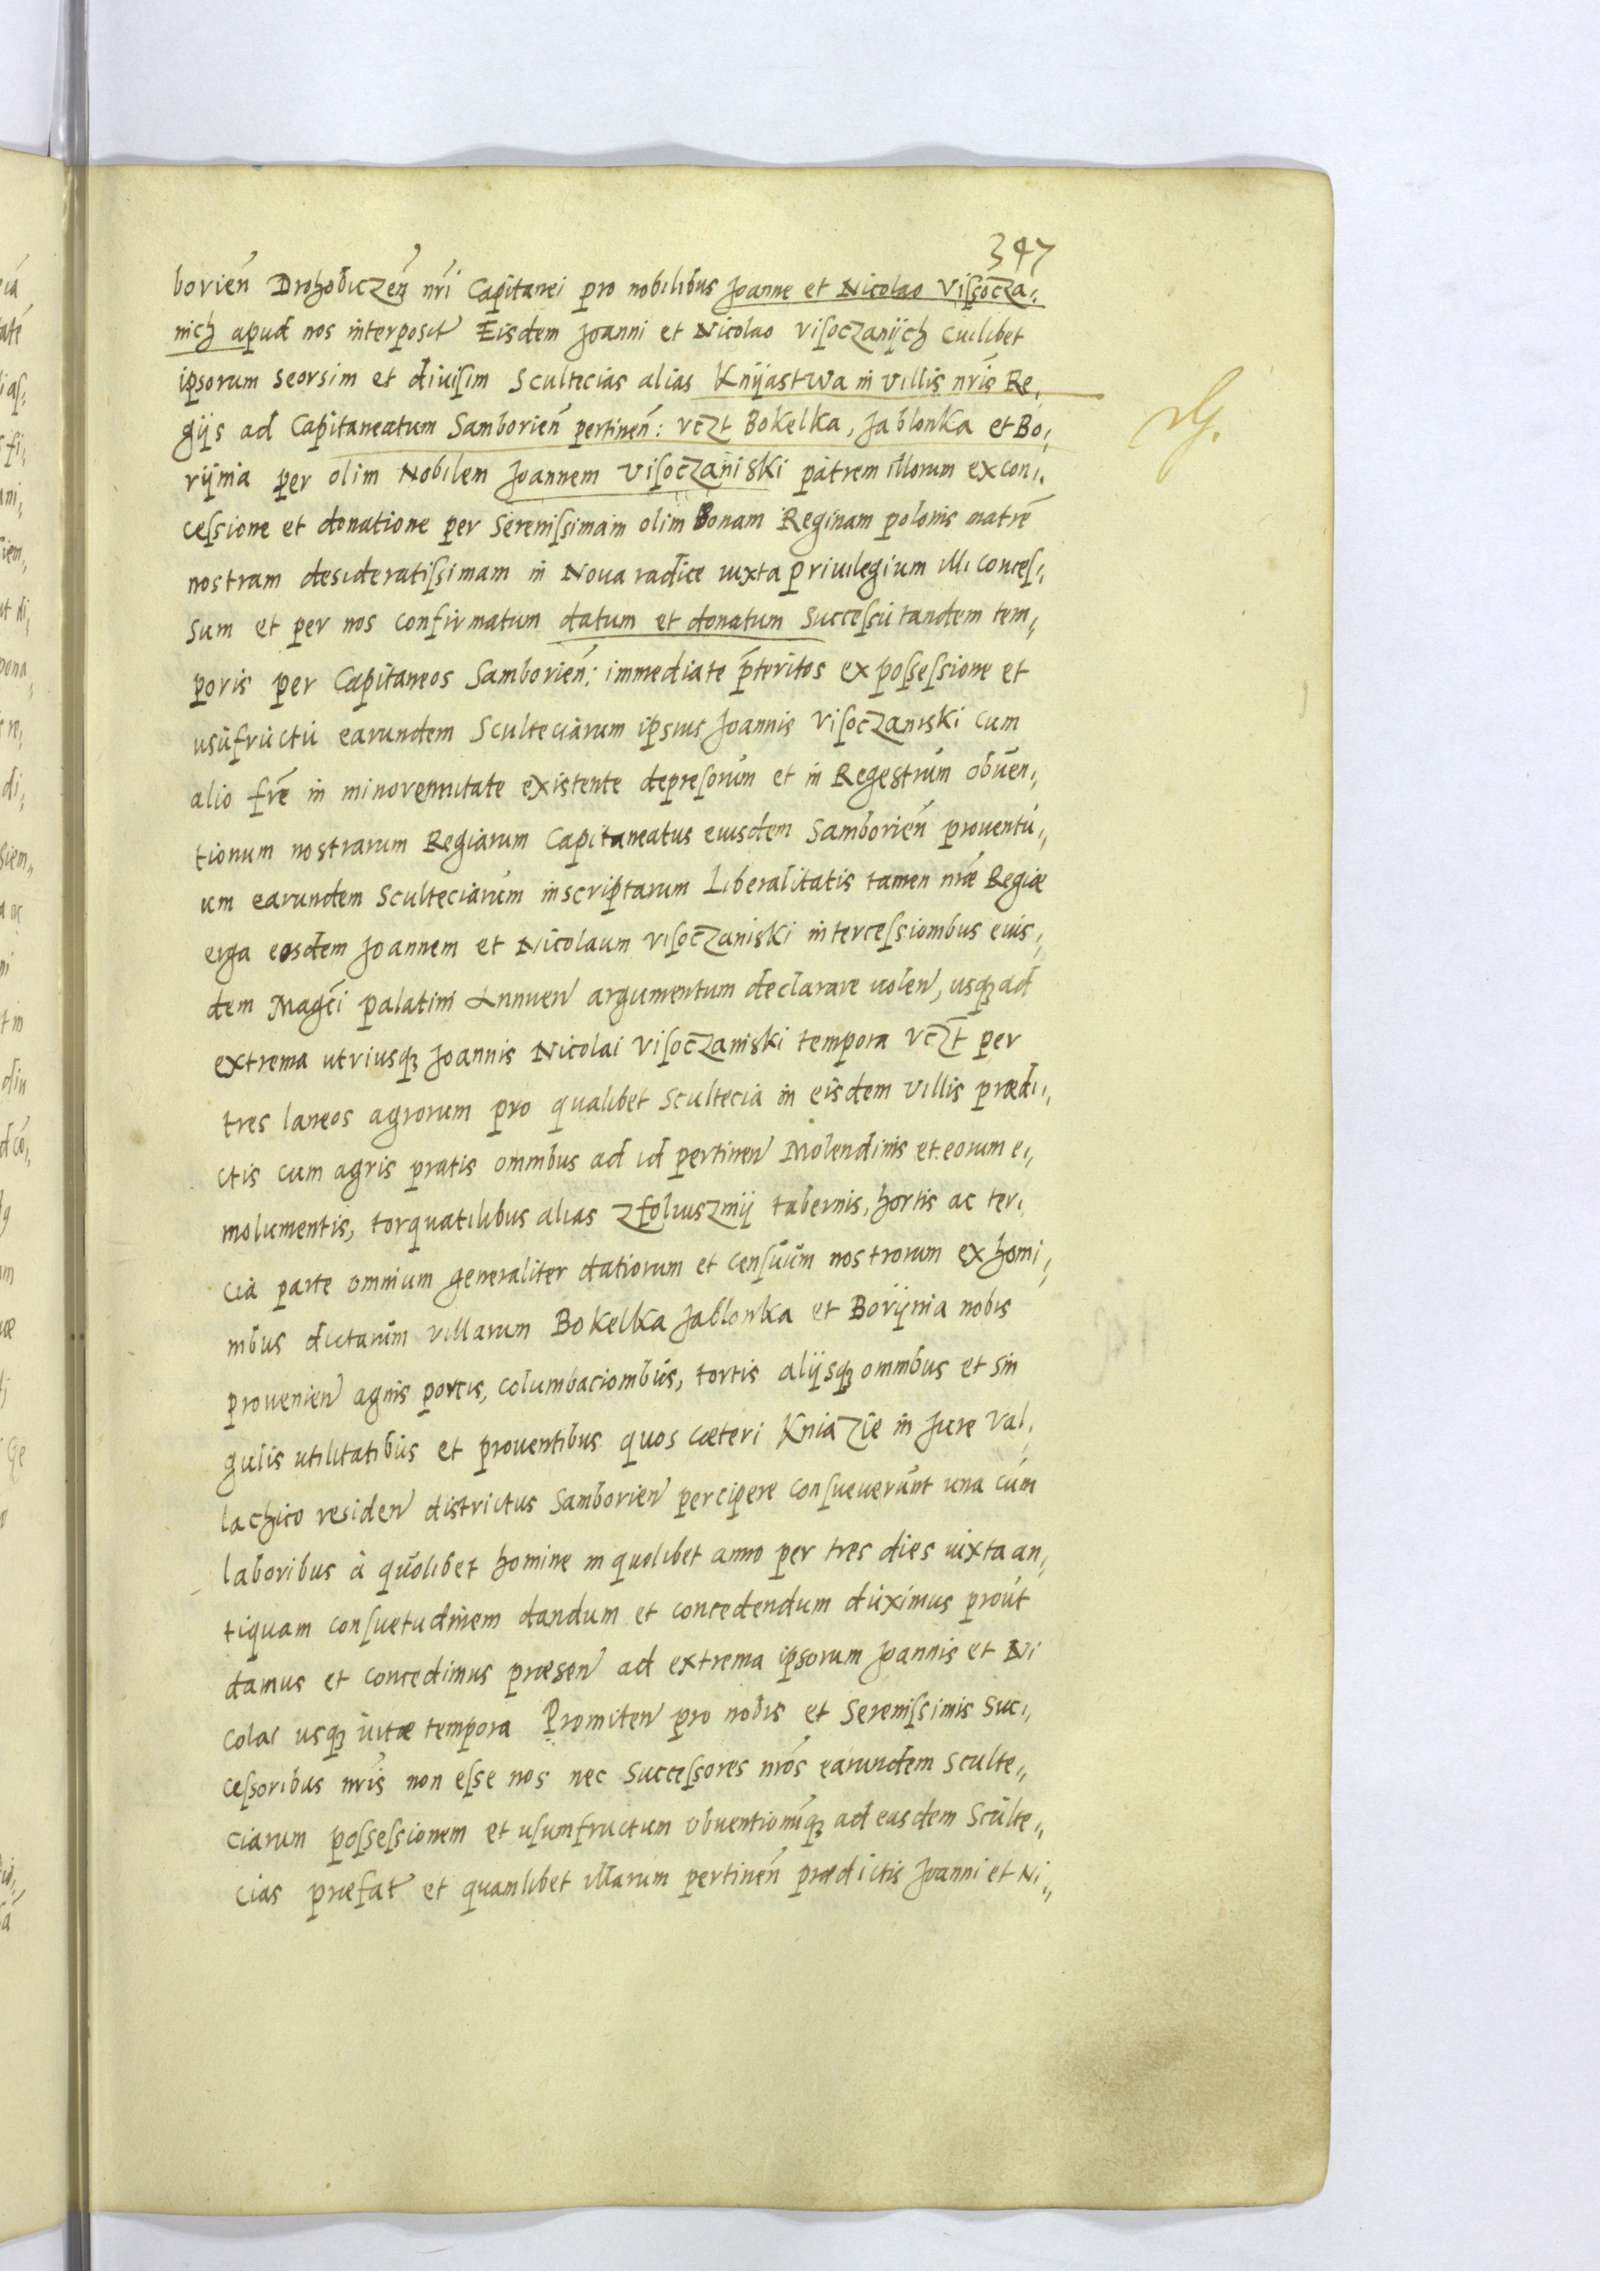 347
borien̄ Drohobiczen̄ nr̄i Capitanei pro nobilibus Joanne et Nicolao Vissocza,,
nich apud nos interposit Eisdem Joanni et Nicolao Visoczanijch Cuilibet
ipsorum seorsim et diuisim Scultecias alias Knijastwa in villis nr̄is Re,
gijs ad Capitaneatum Samborien̄ pertinen̄: vczt Bokelka, Jablonka et Bo,,
rijnia per olim Nobilem Joannem Visoczaniski patrem illorum ex con,
cessione et donatione per Serenissimam olim Bonam Reginam polonis matrē
nostram desideratissimam in Noua radice iuxta priuilegium illi conces,,
sum et per nos confirmatum datum et donatum Successu tandem tem,,
poris per Capitaneos Samborien̄: immediate p̄teritos ex possessione et
usufructu earundem Scultetiarum ipsius Joannis Visoczaniski cum
alio fr̄e in minorennitate existente depresorum et in Regestrum obuen,,
tionum nostrarum Regiarum Capitaneatus eiusdem Samborien̄ prouentu,,
um earundem Sculteciarum inscriptarum Liberalitatis tamen nr̄æ Regiæ
erga eosdem Joannem et Nicolaum Visoczaniski intercessionibus eius,,
dem Magc̄i palatini Annuen argumentum declarare uolen, usq̨ ad
extrema utriusq̨ Joannis Nicolai Visoczaniski tempora vczt per
tres laneos agrorum pro qualibet Scultecia in eisdem villis prædi,,
ctis cum agris pratis omnibus ad id pertinen Molendinis et eorum e,,
molumentis, torquatilibus alias zfoluszmij tabernis, hortis ac ter,
cia parte omnium generaliter datiorum et censuum nostrorum ex homi,,
nibus dictarum villarum Bokelka Jablonka et Borijnia nobis
prouenien agnis porcis, columbacionibus, tortis alijsq̨ omnibus et sin
gulis utilitatibus et prouentibus quos cæteri Kniazie in Jure Val,,
lachico residen districtus Samborien percipere consueuerunt una cum
laboribus à quolibet homine in quolibet anno per tres dies iuxta an,,
tiquam consuetudinem dandum et concedendum duximus prout
damus et concedimus præsen ad extrema ipsorum Joannis et Ni
colai usq̨ uitæ tempora Promiten pro nobis et Serenissimis Suc,,
cessoribus nr̄is non esse nos nec Successores nr̄os earundem Sculte,,
ciarum possessionem et usumfructum obuentionumq̨ ad easdem Sculte,,
cias præfat et quamlibet illarum pertinen̄ prædictis Joanni et Ni,,